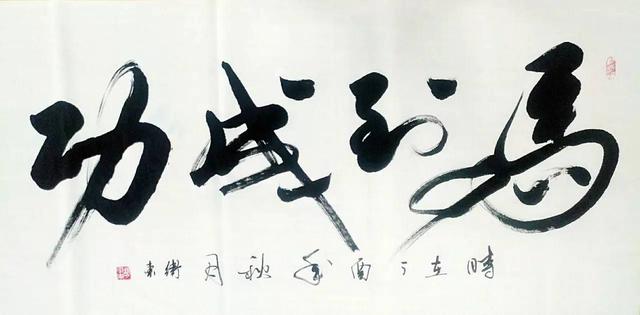 馬到成功
時在丁酉年秋月衛東